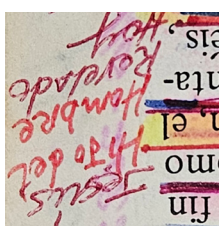 fin
omo
n, el
nta-
éis,
Jesús
Hijo del
Hombre
Revelado
Hoy